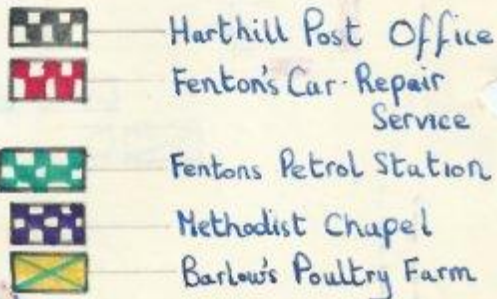 Harthill Post Office
Fenton's Car-Repair
Service
Fentons Petrol Station
Methodist Chapel
Barlow's Poultry Farm